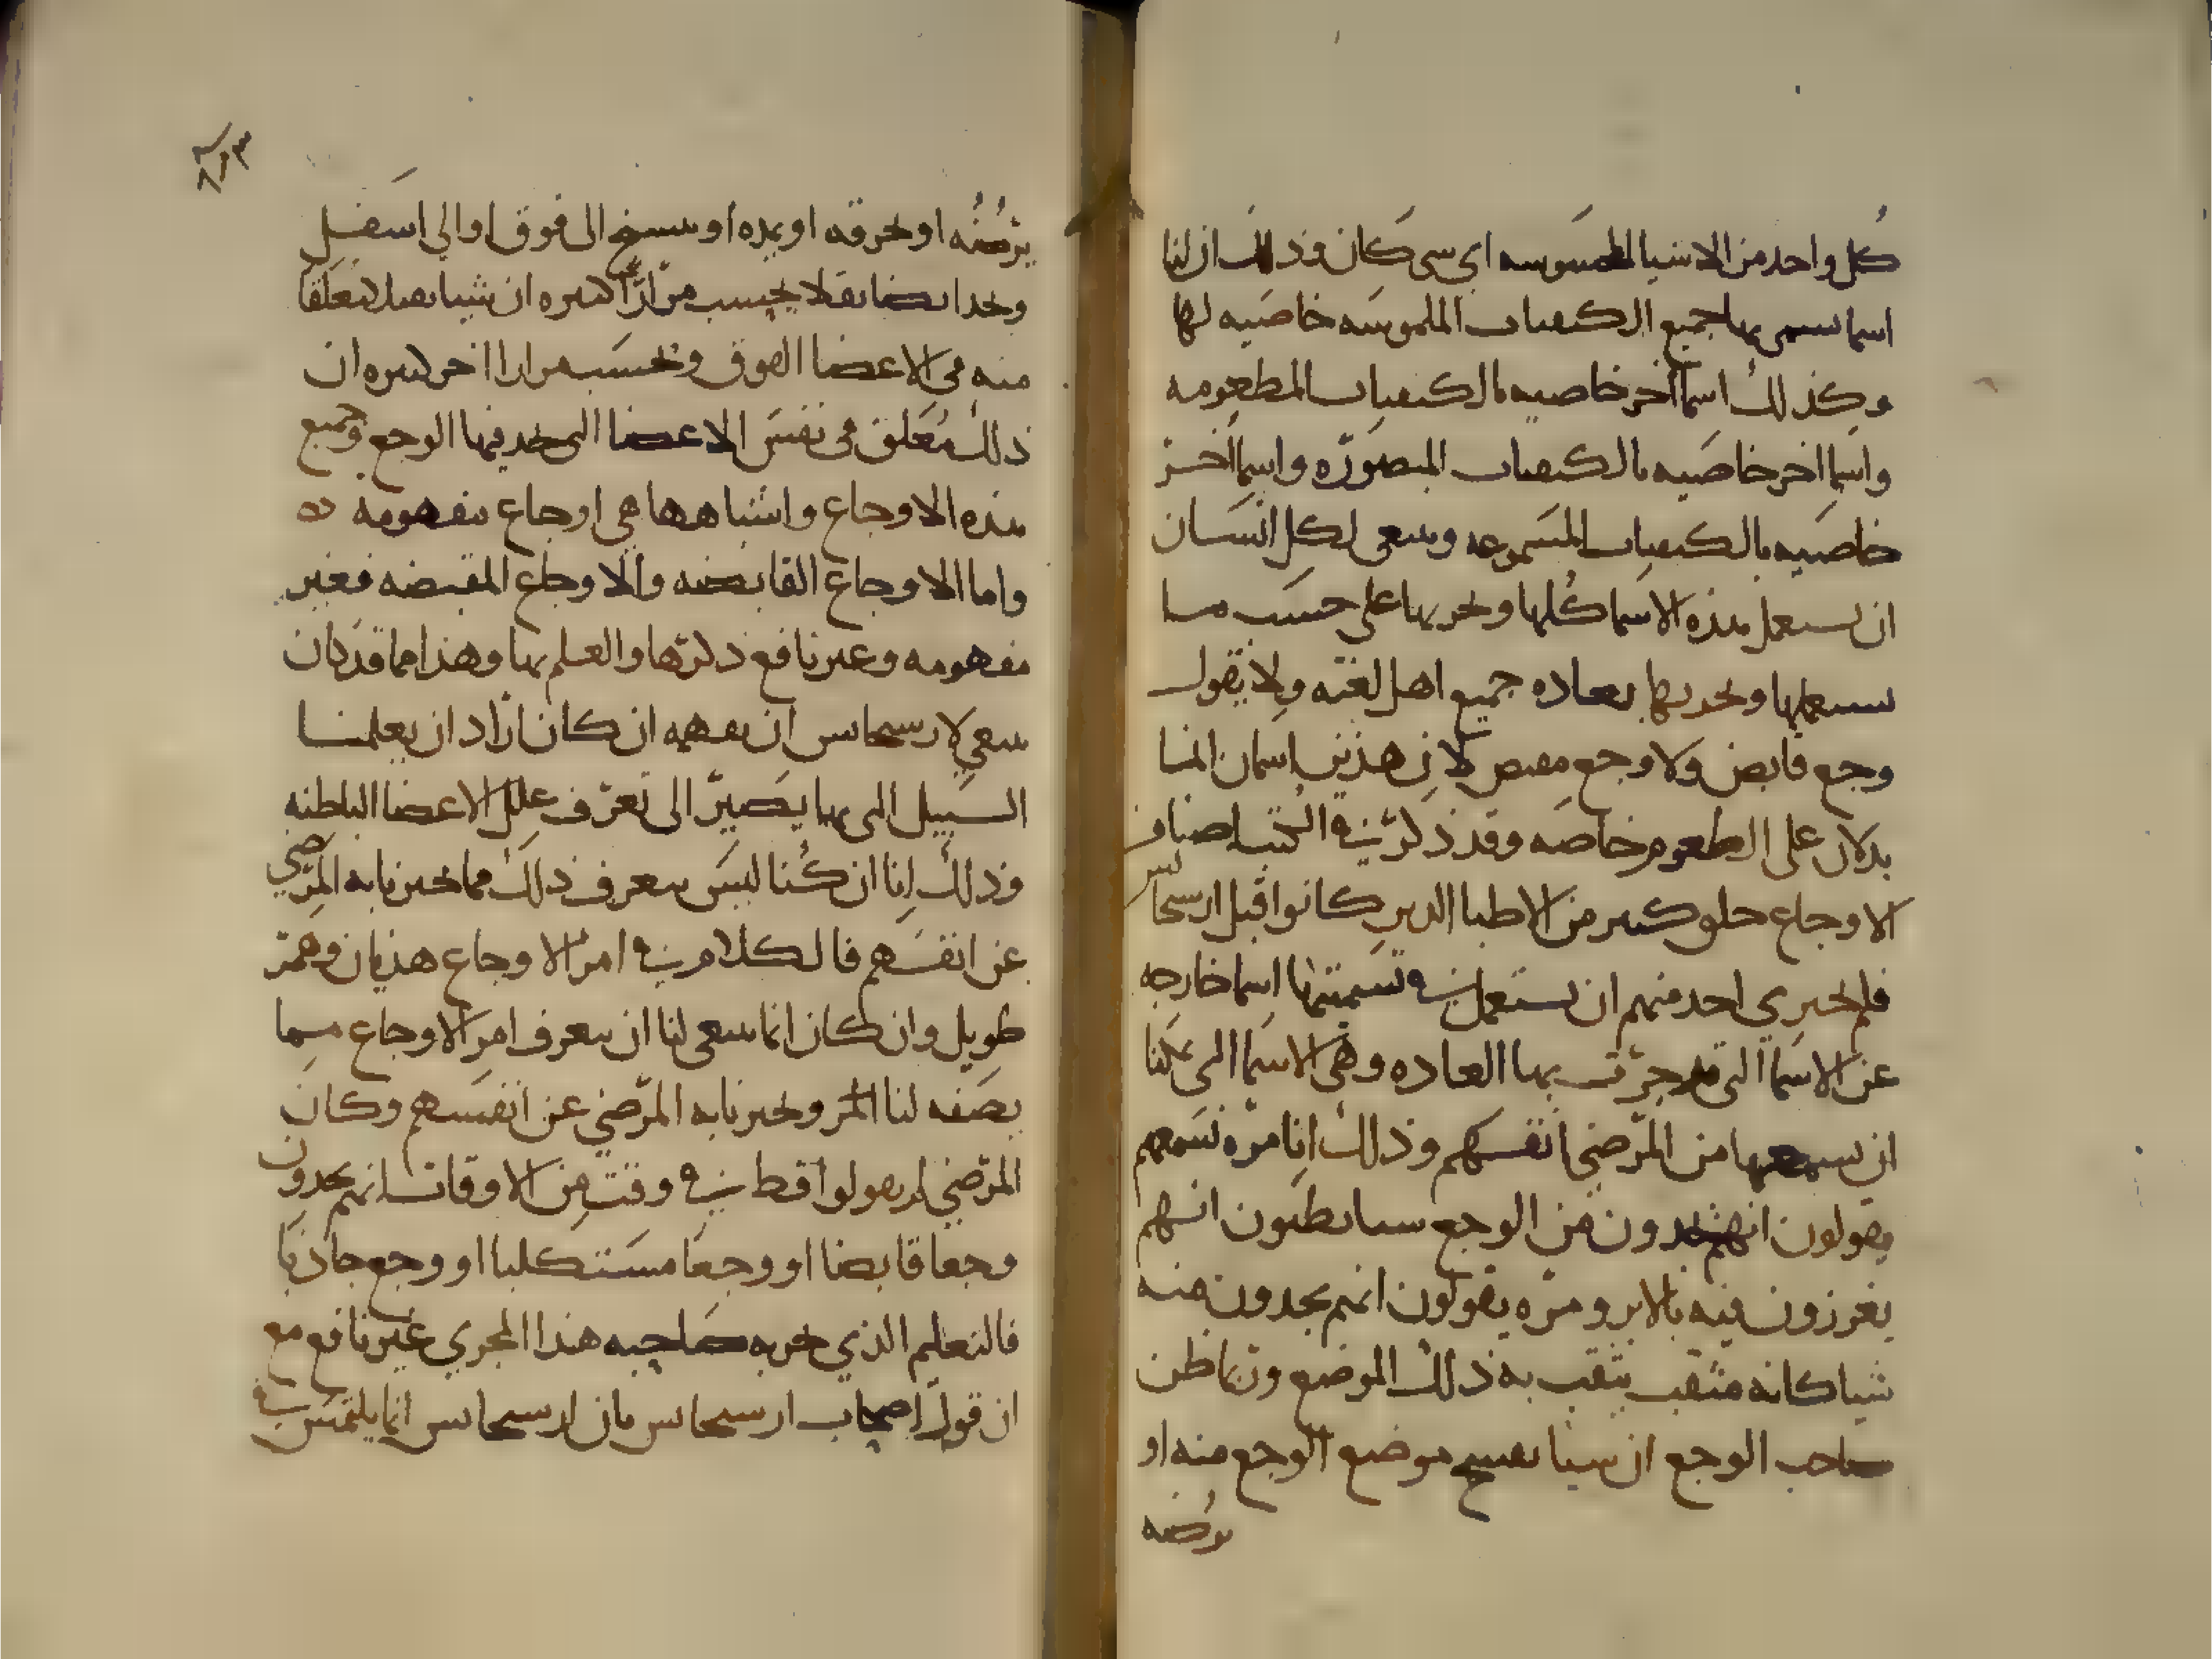 كل واحد من الاشيا المحسوسه اي شي كان وذلك ان لنا
اسما نسمي بها جميع الكيفيات الملموسه خاصيه لها
وكذلك اسما اخر خاصيه بالكيفيات المطعومه
واسما اخر خاصيه بالكيفيات المبصوره واسما اخر
خاصيه بالكيفيات المسموعه وينبغي لكل انسان
ان يستعمل هذه الاسما كلها ويجريها علي حسب ما
يستعملها ويجريها بعاده جميع اهل لغته ولا يقول
وجع قابض ولا وجع مقبض لان هذين اسمان انما
يدلان علي الطعوم خاصه وقد ذكر في الكتب اصناف
الاوجاع خلق كثير من الاطبا الذين كانوا قبل ارسيجانس
فلم يجتري احد منهم ان يستعمل في تسميتها اسما خارجه
عن الاسما التي قد جرت بها العاده وهي الاسما التي يمكننا
ان نسمعها من المرضي انفسهم وذلك انا مره نسمعهم
يقولون انهم يجدون من الوجع شيا يظنون انهم
يغرزون فيه بالابر ومره يقولون انهم يجدون منه
شيا كانه مثقب يثقب به ذلك الموضع وربما ظن
صاحب الوجع ان شيا يفسخ موضع الوجع منه او
يرضه
يرضه او يخرقه او يمده او يسيخ الي فوق او الي اسفل
ويجد ايضا ثقلا يحسب مرارا كثيره ان شيا ثقيلا معلقا
منه في الاعضا الفوق ويحسب مرارا اخر كثيره ان
ذلك معلق في نفس الاعضا التي يجد فيها الوجع وجميع
هذه الاوجاع واشباهها هي اوجاع مفهومه ه
واما الاوجاع القابضه والاوجاع المقبضه فغير
مفهومه وغير نافع ذكرها والعلم بها وهذا مما قد كان
ينبغي لارسيجانس ان يفهمه ان كان اراد ان يعلمنا
السبيل التي بها يصير الي تعرف علل الاعضا الباطنه
وذلك انا ان كنا ليس نعرف ذلك مما يخبرنا به المرضي
عن انفسهم فالكلام في امر الاوجاع هذيان وهمز
طويل وان كان انما ينبغي لنا ان نعرف امر الاوجاع مما
يصفه لنا المر ويخبرنا به المرضي عن انفسهم وكان
المرضي لم يقولوا قط في وقت من الاوقات انهم يجدون
وجعا قابضا او وجعا مستكلبا او وجع جاذبا
فالتعليم الذي يجر به صاحبه هذا المجري غير نافع مع
ان قول اصحاب ارسيجانس بان ارسيجانس انما يلتمس في